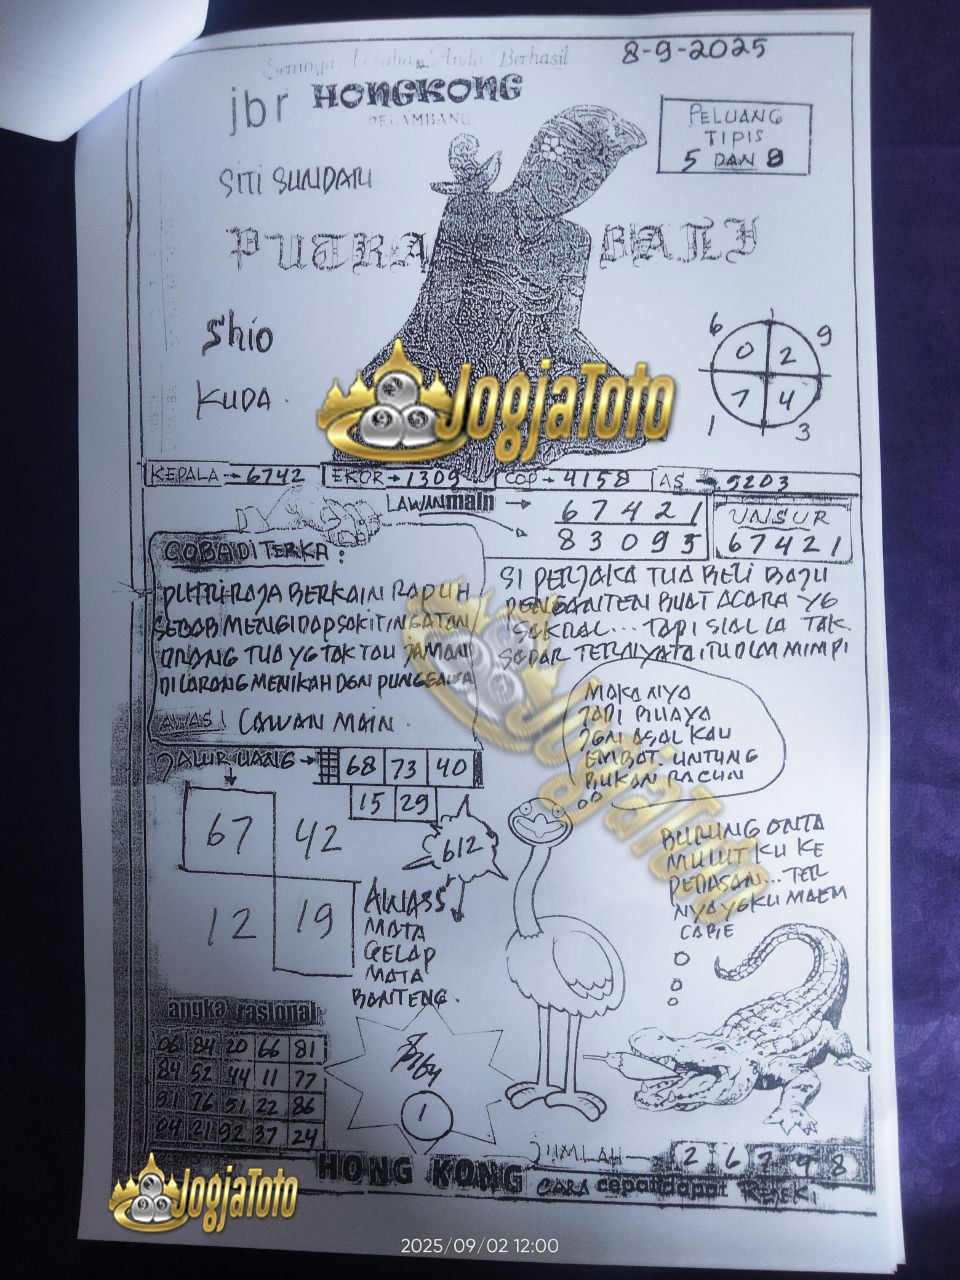 Semoga Usaha Anda Berhasil
8-9-2025
jbr HONGKONG
PELAMBANG
PELUANG
TIPIS
5 DAN 8
SITI SUNDARI
PUTRA BALI
Shio
KUDA
6 9
0 2
7 4
1 3
JogjaToto
KEPALA → 6742 EKOR → 1309 COP → 4158 AS → 5203
LAWAN main → 67421
83095
UNSUR
67421
COBA DI TERKA :
PUTRI RAJA BERKAIN RAPUH
SEBAB MENGIDAP SAKIT INGATAN
ORANG TUA YG TAK TAU JAMAN
DI LARANG MENIKAH DGN PUNGGAWA
AWAS! LAWAN MAIN.
SI PERJAKA TUA BELI BAJU
PENGANTEN BUAT ACARA YG
SAKRAL... TAPI SIAL IA TAK
SADAR TERNYATA ITU DLM MIMPI
MAKA NYA
JADI BUAYA
JGN ASAL KAU
EMBAT. UNTUNG
BUKAN RACUN
JALUR UANG → 68 73 40
15 29
67 42
12 19
612
AWASS
MATA
GELAP
MATA
BANTENG.
BURUNG ONTA
MULUT KU KE
PEDASAN... TER
NYA YG KU MAEM
CABE
angka rasional
06 84 20 66 81
84 52 44 11 77
91 76 51 22 86
04 21 92 37 24
64
1
JUMLAH
2 6 7 9 8
HONG KONG CARA cepat dapat REJEKI
JogjaToto
JogjaToto
2025/09/02 12:00